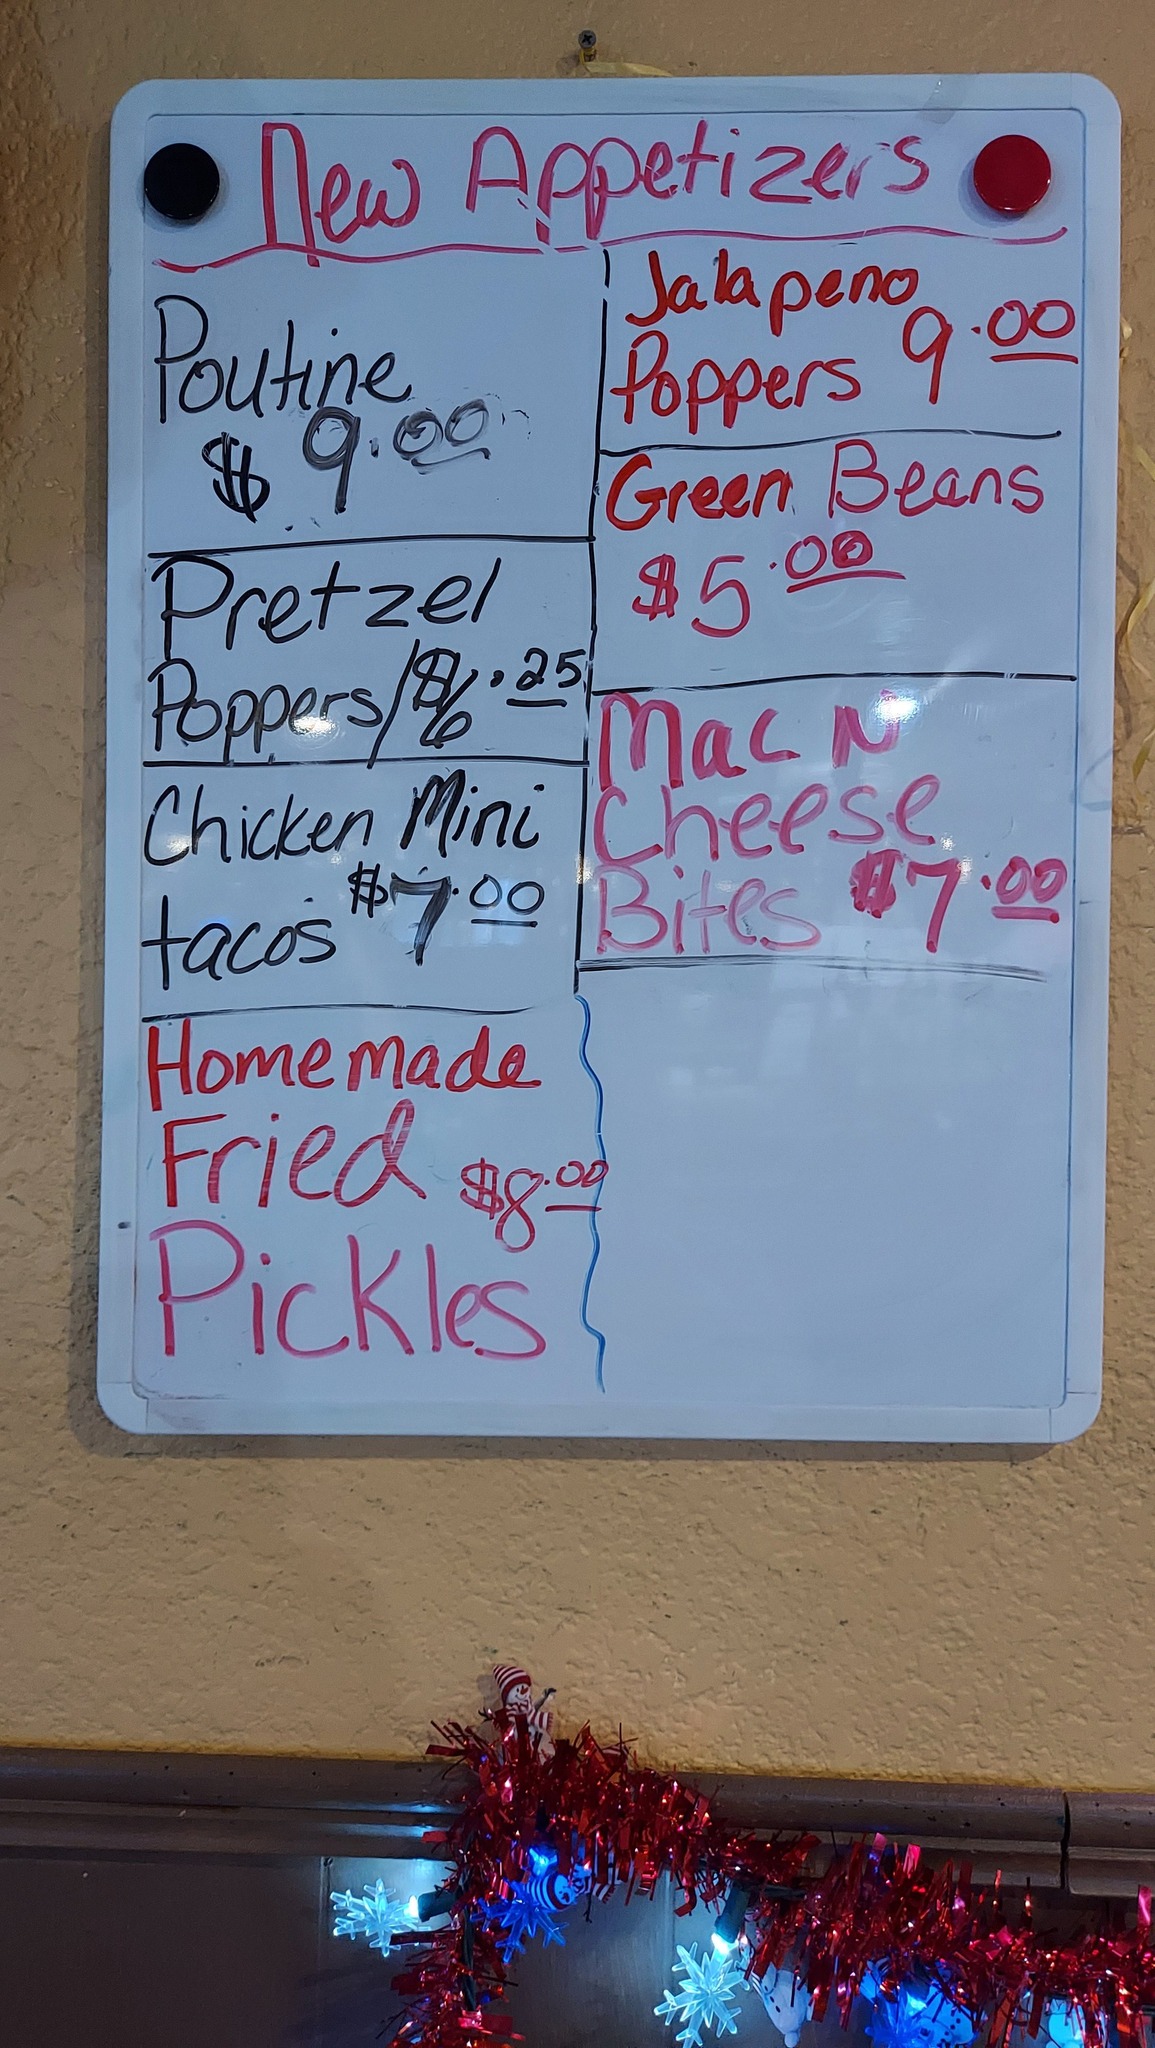 New Appetizers
Poutine
$ 9.00
Pretzel
Poppers/$6.25
Chicken Mini
tacos $7.00
Homemade
Fried $8.00
Pickles
Jalapeno
Poppers 9.00
Green Beans
$5.00
Mac N
Cheese
Bites $7.00